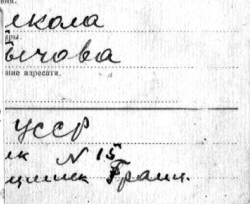 екола
ры.
ычова
ние адресата.
УССР
ик N 15
щинск Гранич.